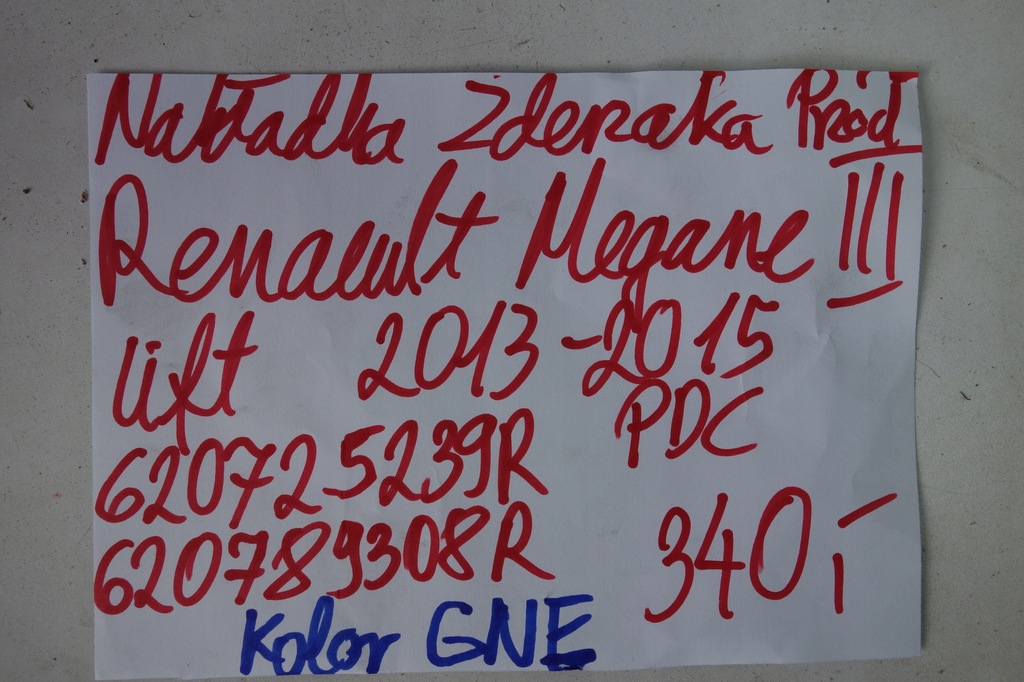 Nakładka Zderzaka Przód
Renault Megane III
lift 2013-2015
PDC
620725239R
620789308R
340,-
Kolor GNE